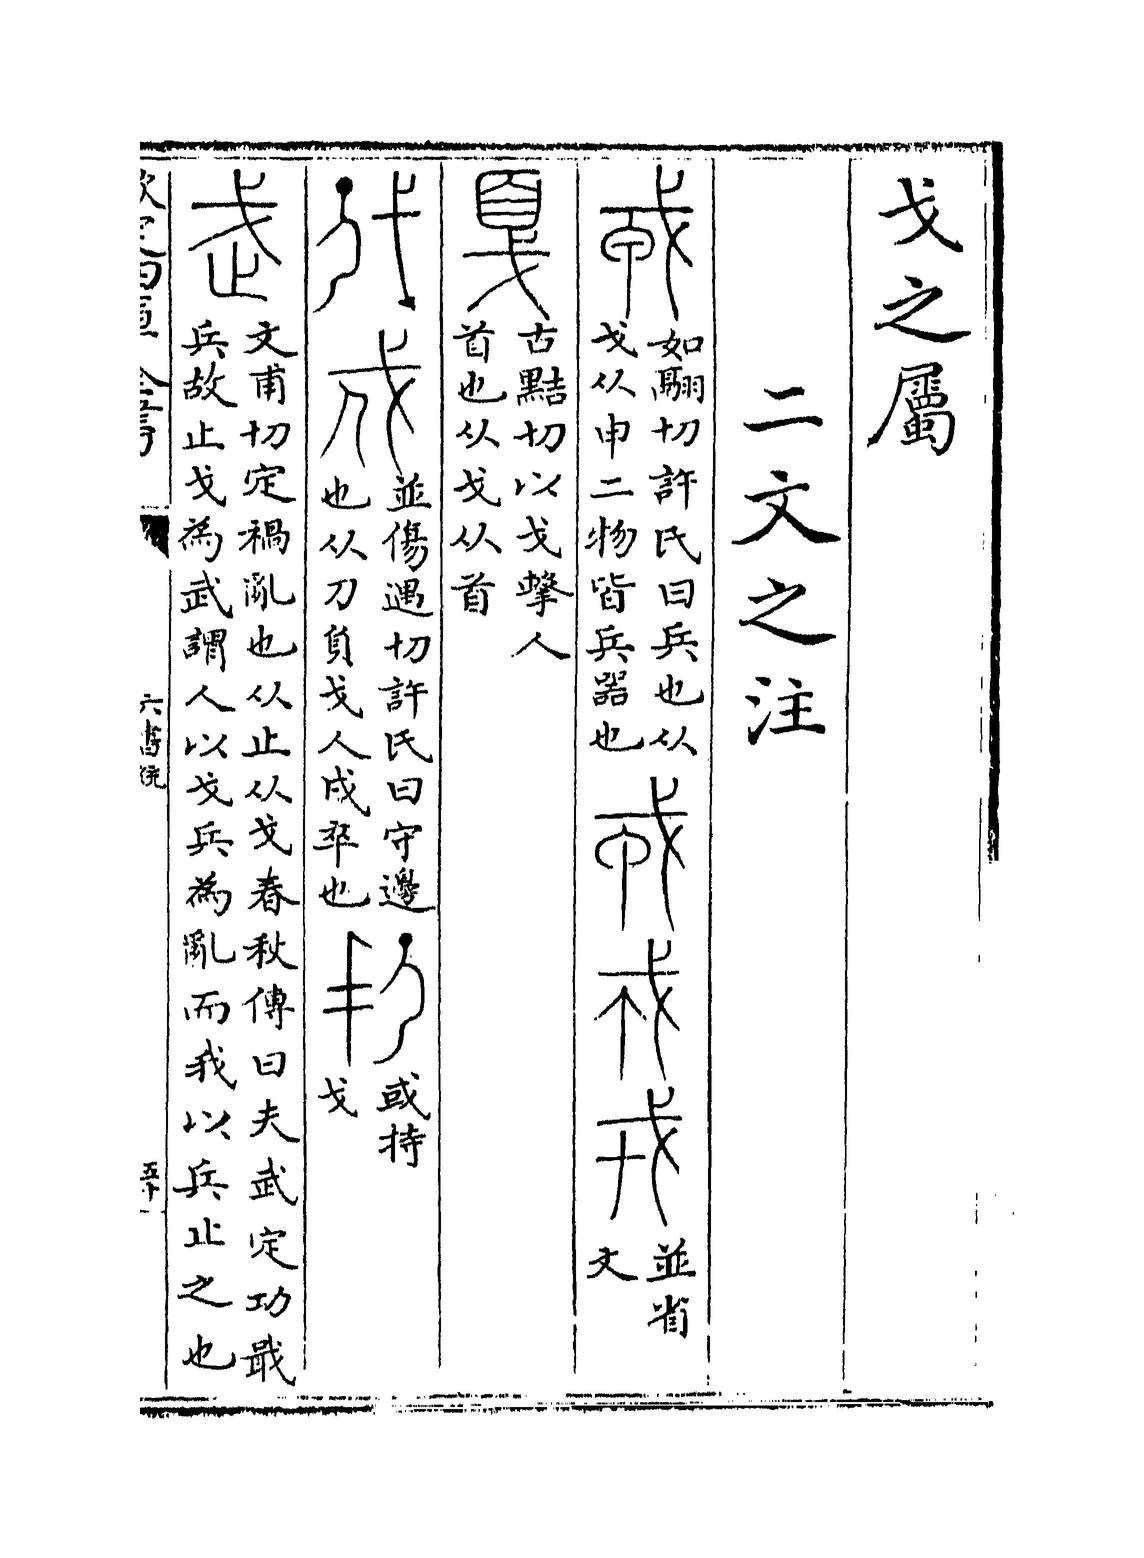 戈之屬
二文之注
如切許氏曰兵也从
戈从申二物皆兵器也
並省
文
戛
古黠切以戈擊人
首也从戈从首
戍
並傷遇切許氏曰守邊
也从刀負戈人戍卒也
或持
戈
武
文甫切定禍亂也从止从戈春秋傳曰夫武定功戢
兵故止戈為武謂人以戈兵為亂而我以兵止之也
欽定四庫全書
六書統